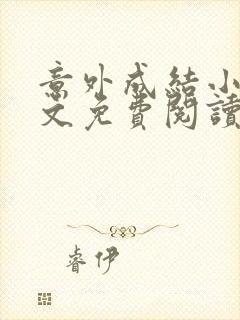 意外成結小
文免費閱讀
睿伊